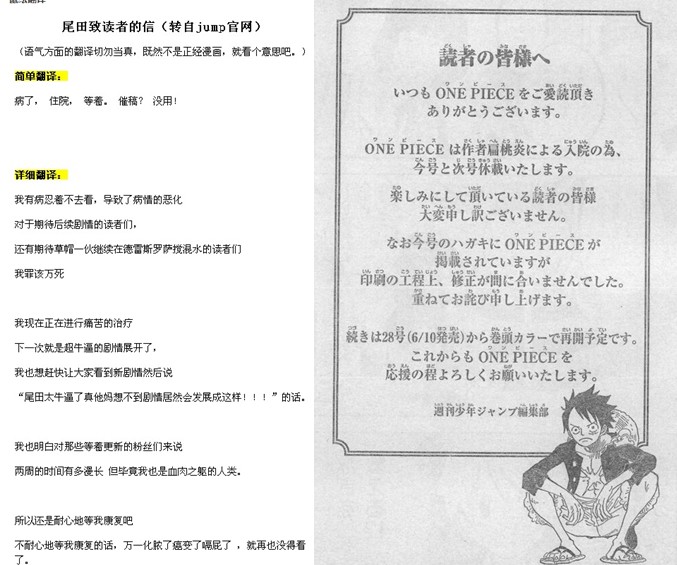 尾田致读者的信（转自jump官网）
（语气方面的翻译切勿当真，既然不是正经漫画，就看个意思吧。）
简单翻译：
病了， 住院， 等着。 催稿？ 没用！
详细翻译：
我有病忍着不去看，导致了病情的恶化
对于期待后续剧情的读者们，
还有期待草帽一伙继续在德雷斯罗萨搅混水的读者们
我罪该万死
我现在正在进行痛苦的治疗
下一次就是超牛逼的剧情展开了，
我也想赶快让大家看到新剧情然后说
“尾田太牛逼了真他妈想不到剧情居然会发展成这样！！！”的话。
我也明白对那些等着更新的粉丝们来说
两周的时间有多漫长 但毕竟我也是血肉之躯的人类。
所以还是耐心地等我康复吧
不耐心地等我康复的话，万一化脓了癌变了嗝屁了 ，就再也没得看
了。
読者の皆様へ
いつも ONE PIECE をご愛読頂き
ありがとうございます。
ONE PIECE は作者扁桃炎による入院の為、
今号と次号休載いたします。
楽しみにして頂いている読者の皆様
大変申し訳ございません。
なお今号のハガキに ONE PIECE が
掲載されていますが
印刷の工程上、修正が間に合いませんでした。
重ねてお詫び申し上げます。
続きは28号(6/10発売)から巻頭カラーで再開予定です。
これからも ONE PIECE を
応援の程よろしくお願いいたします。
週刊少年ジャンプ編集部